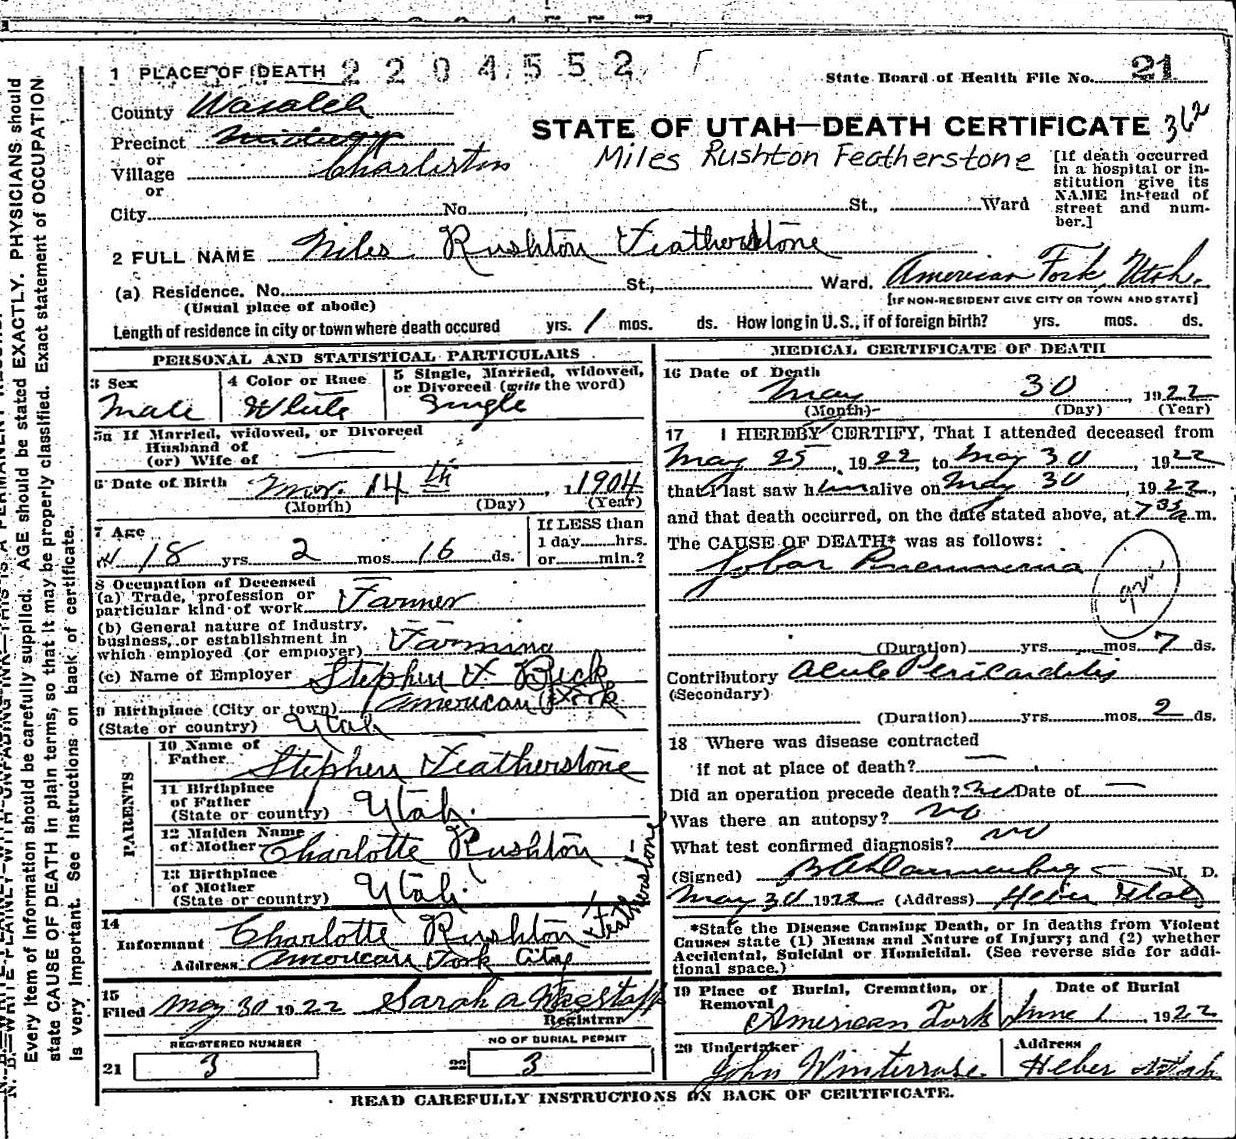 1 PLACE OF DEATH 2204552
State Board of Health File No. 21
County Wasatch
362
STATE OF UTAH—DEATH CERTIFICATE
Precinct Midway
or
Village Charleston
or
Miles Rushton Featherstone
[If death occurred in a hospital or institution give its NAME instead of street and number.]
City No. St., Ward
2 FULL NAME Niles Rushton Featherstone
(a) Residence. No. St., Ward. American Fork, Utah.
(Usual place of abode) [IF NON-RESIDENT GIVE CITY OR TOWN AND STATE]
Length of residence in city or town where death occured yrs. 1 mos. ds. How long in U.S., if of foreign birth? yrs. mos. ds.
PERSONAL AND STATISTICAL PARTICULARS
3 Sex
Male
4 Color or Race
White
5 Single, Married, widowed, or Divorced (write the word)
Single
5a If Married, widowed, or Divorced
Husband of
(or) Wife of
6 Date of Birth Nov. 14th, 1904
(Month) (Day) (Year)
7 Age
18 yrs 2 mos 16 ds.
If LESS than
1 day hrs.
or min.?
8 Occupation of Deceased
(a) Trade, profession or
particular kind of work Farmer
(b) General nature of Industry,
business, or establishment in
which employed (or employer) Farming
(c) Name of Employer Stephen X. Buck
9 Birthplace (City or town) American Fork
(State or country) Utah
PARENTS
10 Name of
Father Stephen Featherstone
11 Birthplace
of Father
(State or country) Utah.
12 Maiden Name
of Mother Charlotte Rushton
13 Birthplace
of Mother
(State or country) Utah.
14
Informant Charlotte Rushton Featherstone
Address American Fork City
15
Filed May 30 1922 Sarah A
Registrar
REGISTERED NUMBER
21 3
NO OF BURIAL PERMIT
22 3
MEDICAL CERTIFICATE OF DEATH
16 Date of Death
May 30, 1922
(Month) (Day) (Year)
17 I HEREBY CERTIFY, That I attended deceased from
May 25, 1922, to May 30, 1922
that I last saw him alive on May 30, 1922,
and that death occurred, on the date stated above, at 7 35 a.m.
The CAUSE OF DEATH* was as follows:
Lobar Pneumonia
(Duration) yrs. mos. 7 ds.
Contributory Acute Pericarditis
(Secondary)
(Duration) yrs mos. 2 ds.
18 Where was disease contracted
if not at place of death? —
Did an operation precede death? no Date of —
Was there an autopsy? no
What test confirmed diagnosis? no
(Signed) M. D.
May 30 1922 (Address) Heber Utah
*State the Disease Causing Death, or in deaths from Violent
Causes state (1) Means and Nature of Injury; and (2) whether
Accidental, Suicidal or Homicidal. (See reverse side for addi-
tional space.)
19 Place of Burial, Cremation, or
Removal
American Fork
Date of Burial
June 1, 1922
20 Undertaker
John Winterrose.
Address
Heber Utah
READ CAREFULLY INSTRUCTIONS ON BACK OF CERTIFICATE.
Every item of Information should be carefully supplied. AGE should be stated EXACTLY. PHYSICIANS should
state CAUSE OF DEATH in plain terms, so that it may be properly classified. Exact statement of OCCUPATION
is very important. See Instructions on back of certificate.